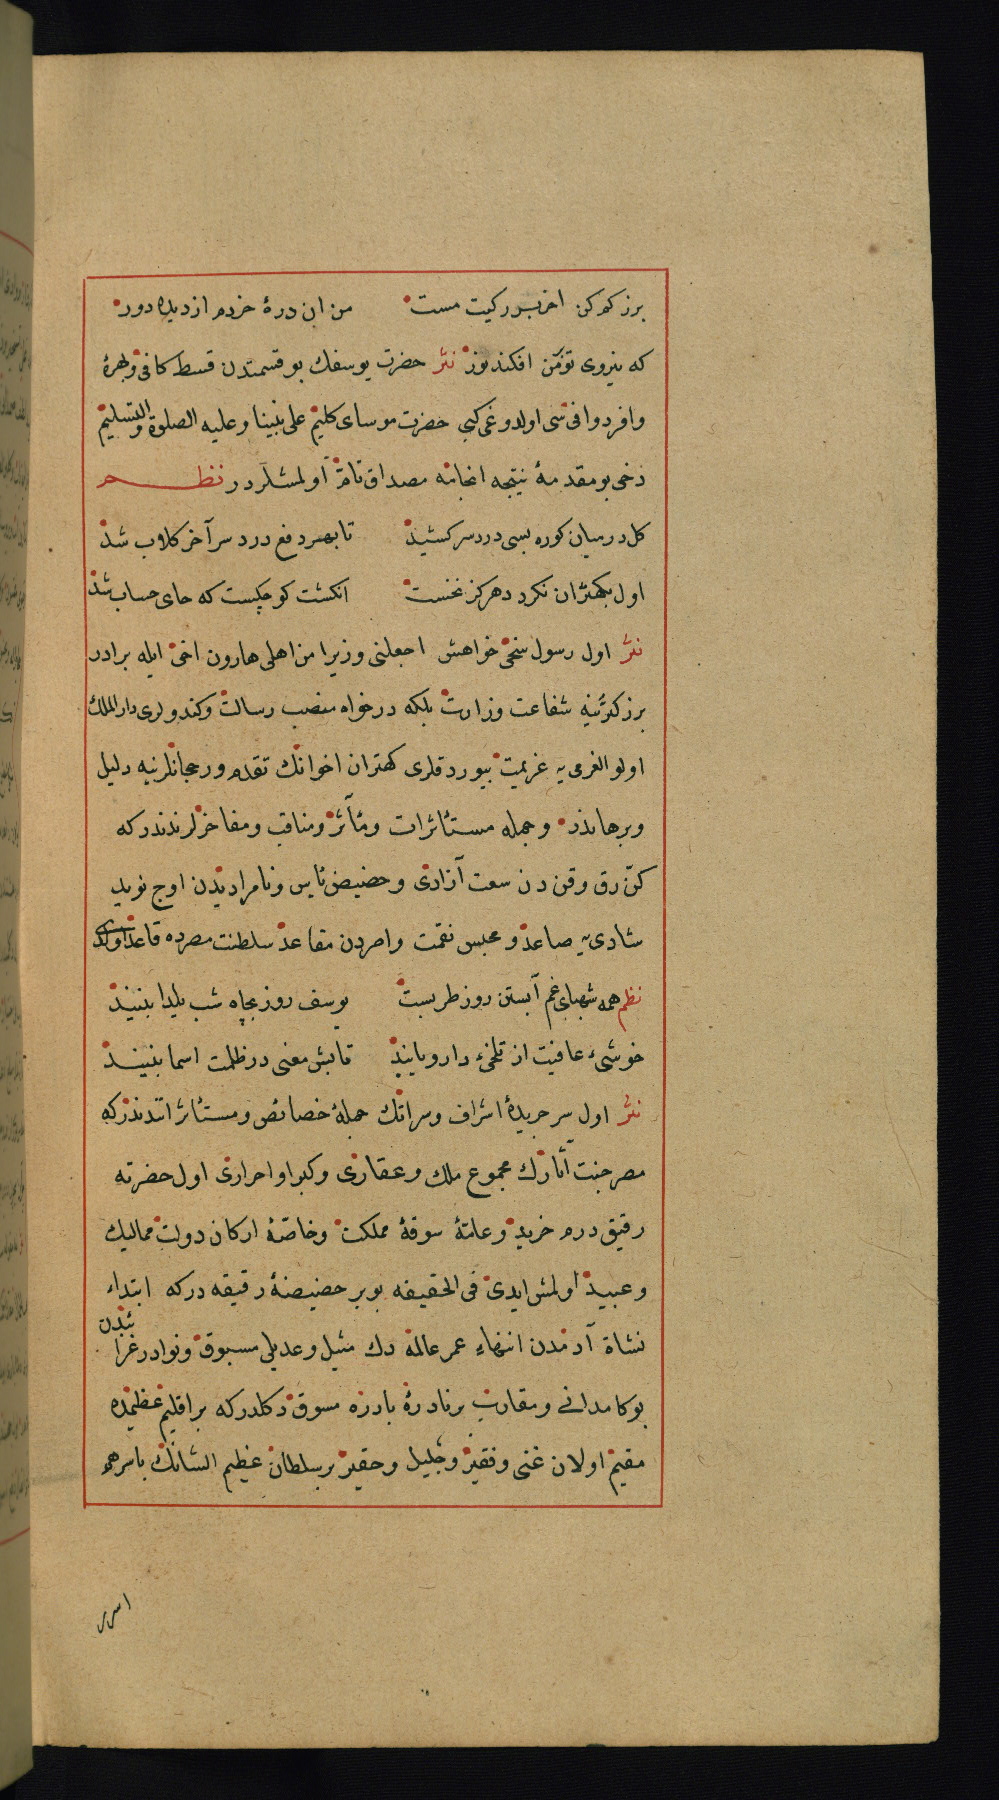 برزكم كن اخر ركيت مست من ان درۀ خردم از ديده دور
كه نيروى تؤمن افكند نوز نثر حضرت يوسفك بو قسمتدن قسط كافى وبهرۀ
وافر دوافىسى اولدوغى كبى حضرت موساى كليم على نبينا وعليه الصلوة والتسليم
دخى بو مقدمۀ نتيجه انجامنه مصداق تام اولمشلردر نظم
كل درميان كوره بسى دردسر كشيد تا بهر دفع درد سر آخر كلاب شد
اول بكهتران نكرد دهر كز نخست انكشت كوچكست كه جاى حساب شد
نثر اول رسول سخى خواهش اجعلنى وزيرا من اهلى هارون اخى ايله برادر
بزركترينه شفاعت وزارت بلكه درخواه منصب رسالت وكندولرى دار الملك
اولو العزمى يه عزيمت بيورد قلرى كهتران اخوانك تقدم ورجحانلرينه دليل
وبرهاندر وجمله مستأثرات ومآثر ومناقب ومفاخرلرندندر كه
كنّ رق وقن دن سعت آزادى وحضيض ياس ونامراديدن اوج نويد
شادى يه صاعد ومحبس نقمت واصردن مقاعد سلطنت مصرده قاعد اولدى
نظم همه شبهاى غم آبستن روز طربست يوسف روز بچاه شب يلدا بينند
خوشىء عافيت از تلخىء دارو يابند تابش معنى در ظلمت اسما بينند
نثر اول سر جريدۀ اشراف وسراتك جملۀ خصائص ومستأثراتندندر كه
مصر جنت آثارك مجموع ملك وعقارى وكبرا واحرارى اول حضرته
رقيق درم خريد وعامۀ سوقۀ مملكت وخاصۀ اركان دولت مماليك
وعبيد اولمش ايدى فى الحقيقه بو بر حضيضۀ رقيقه در كه ابتداء
نشاۀ آدمدن انتهاء عمر عالمه دك مثيل وعديلى مسبوق ونوادر غرائبدن
بوكا مدانى ومقارن بر نادرۀ بادره مسوق دكلدر كه بر اقليم عظيمده
مقيم اولان غنى وفقير وجليل وحقير بر سلطان عظيم الشانك باسرهم
اسرى